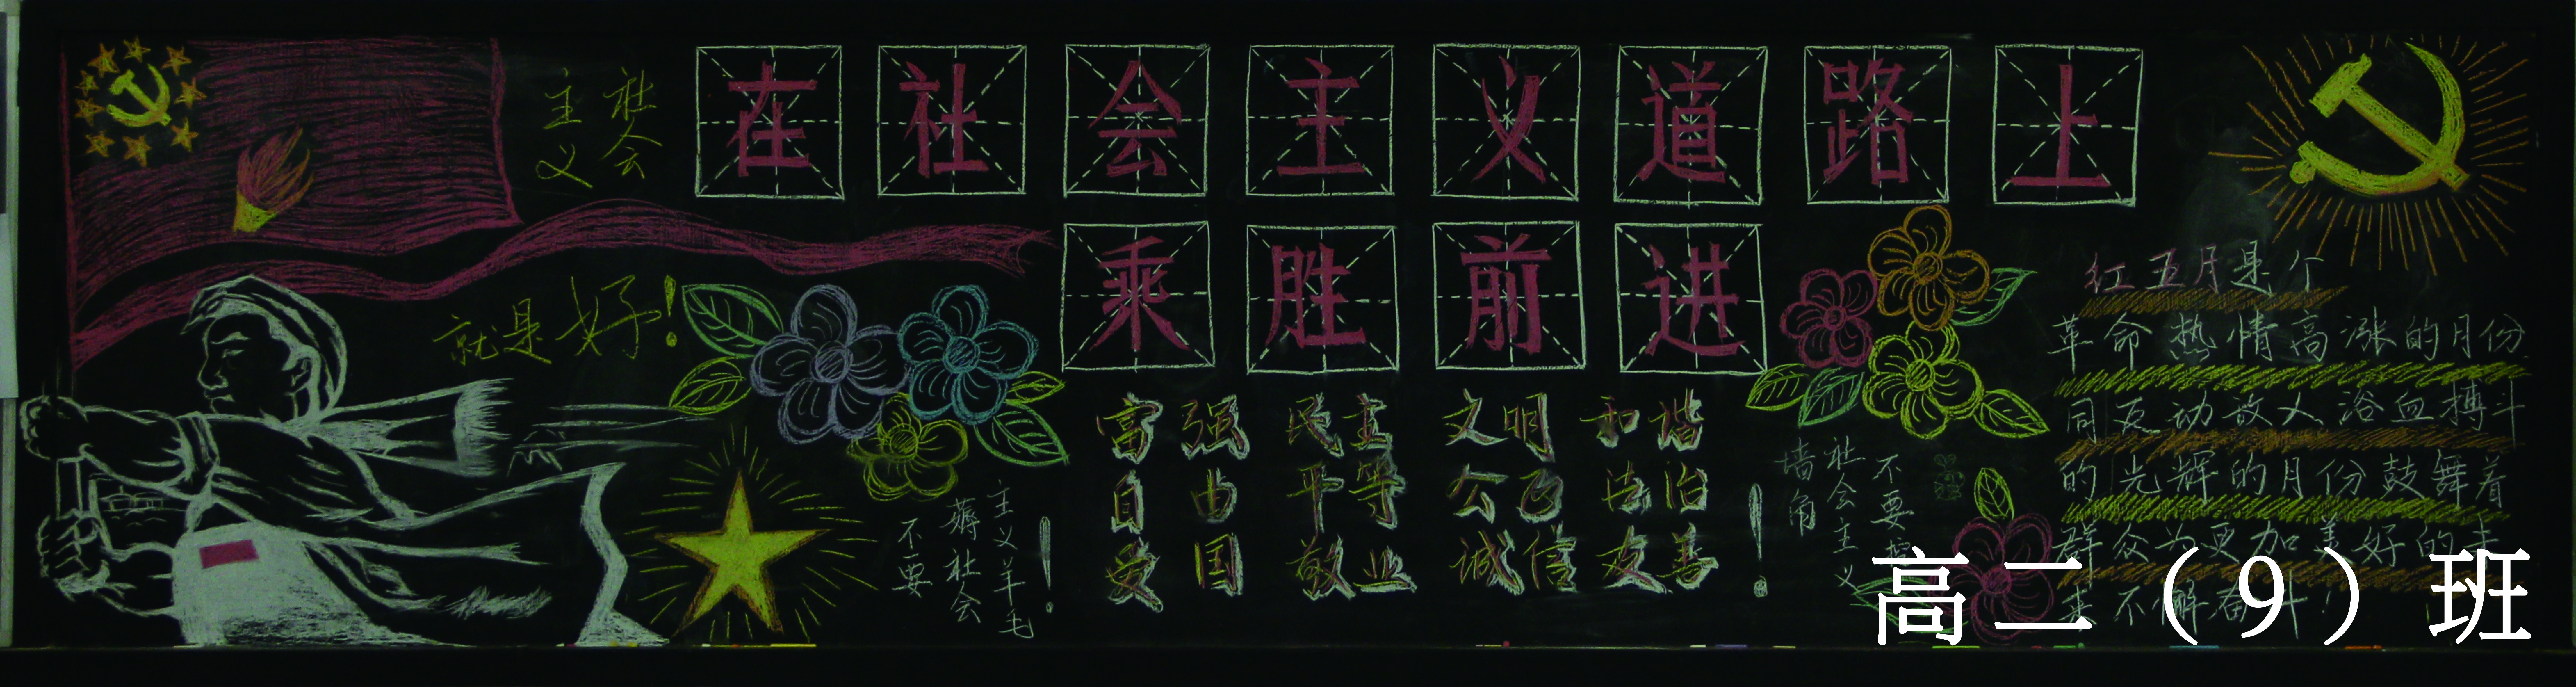 社会
主义
就是好！
在社会主义道路上
乘胜前进
富强 民主 文明 和谐
自由 平等 公正 法治
爱国 敬业 诚信 友善
不要
薅社会
主义羊毛！
不要
社会主义
墙角！
红五月是个
革命热情高涨的月份
同反动敌人浴血搏斗
的光辉的月份鼓舞着
群众为更加美好的未
来不懈奋斗！
高二（9）班